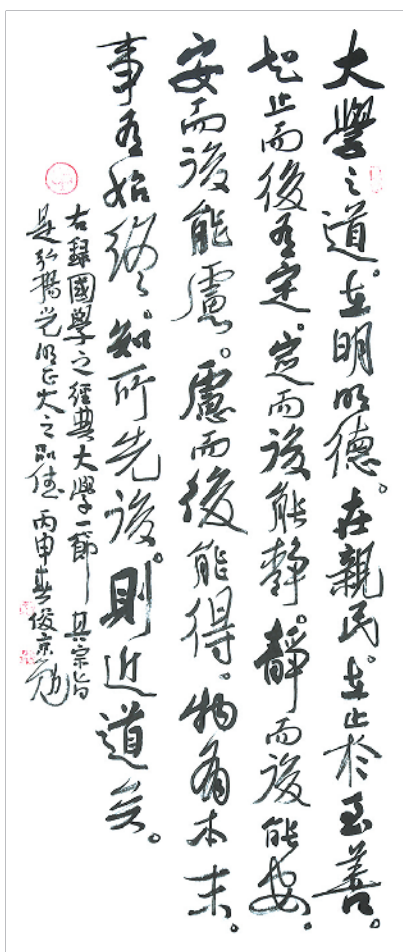 大學之道。在明明德。在親民。在止於至善。
知止而後有定。定而後能靜。靜而後能安。
安而後能慮。慮而後能得。物有本末。
事有始終。知所先後。則近道矣。
右録國學之經典大學一節 其宗旨
是弘揚光明正大之品德 丙申春俊京